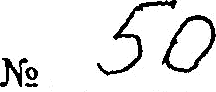 № 50